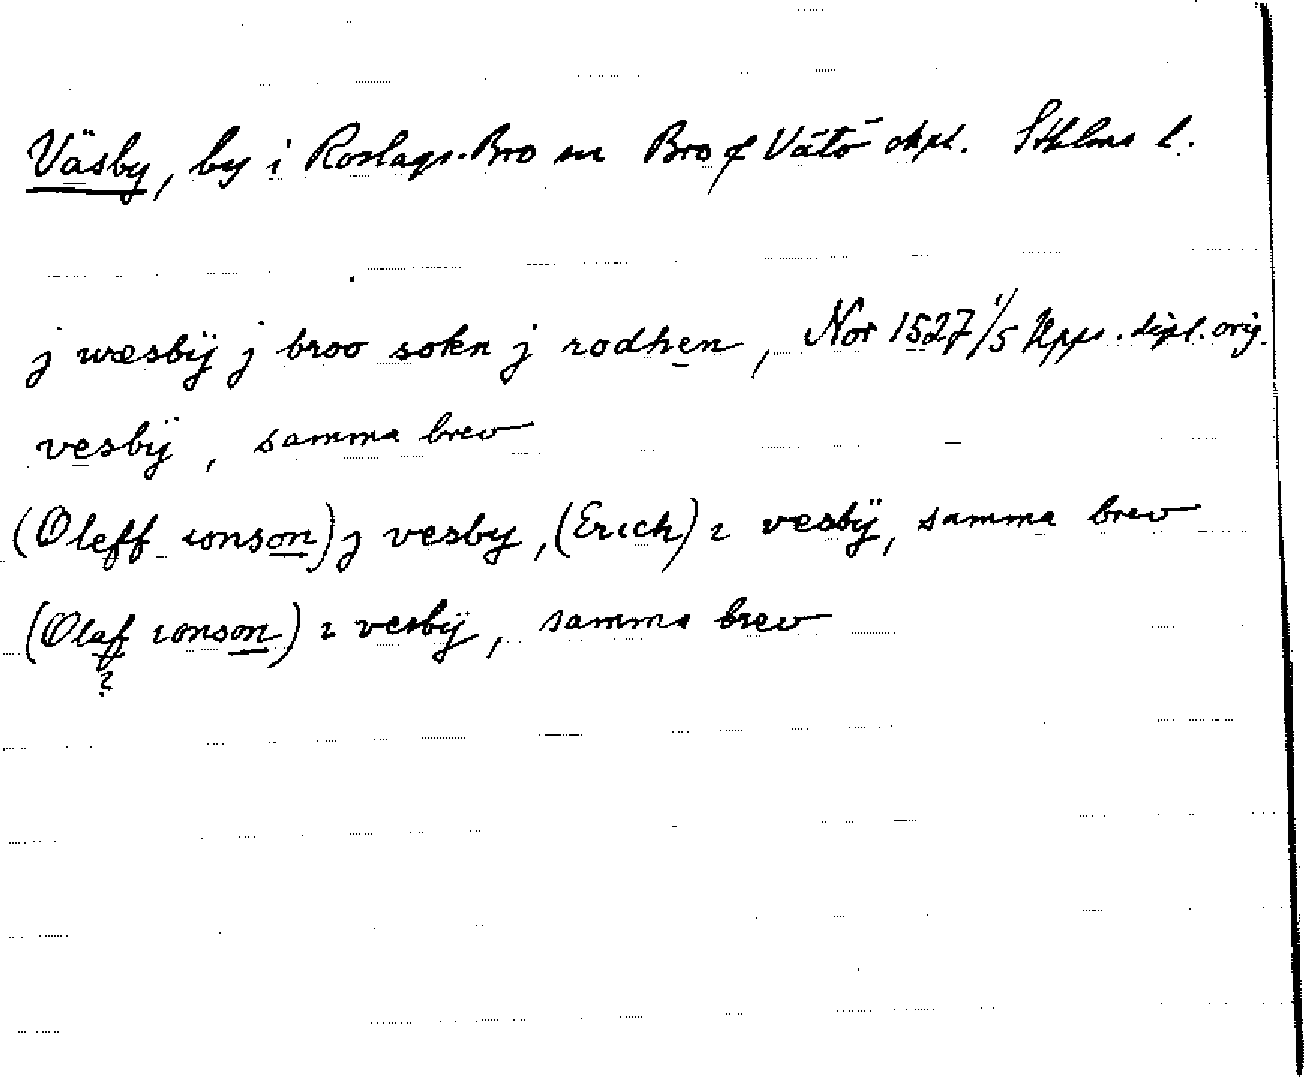 Väsby, by i Roslags-Bro sn Bro o Vätö skpl. Sthlms l.
j wæsbÿ j broo sokn j rodhen, Nor 1527 1/5 Upps. dipl. orig.
vesbÿ, samma brev
(Oleff ıonson) j vesby, (Erıch) ı vesbÿ, samma brev
(Olaf ıonson) ı vesbÿ, samma brev
?